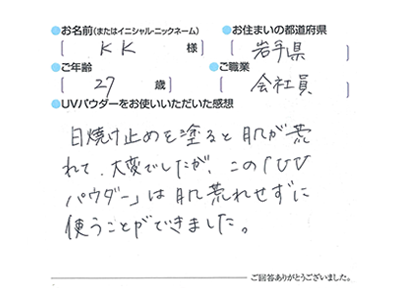 ●お名前(またはイニシャル・ニックネーム) ●お住まいの都道府県
[ KK 様 ] [ 岩手県 ]
●ご年齢 ●ご職業
[ 27 歳 ] [ 会社員 ]
●UVパウダーをお使いいただいた感想
日焼け止めを塗ると肌が荒
れて、大変でしたが、この「UV
パウダー」は肌荒れせずに
使うことができました。
ご回答ありがとうございました。